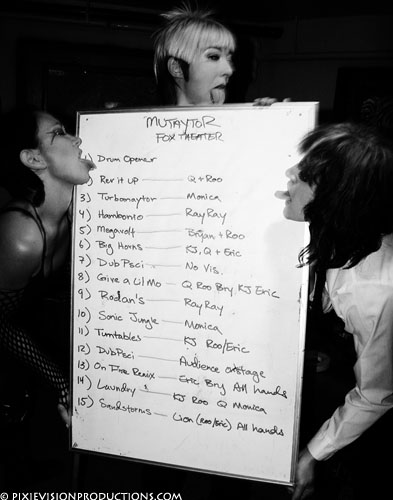 MUTAYTOR
FOX THEATER
1) Drum Opener
2) Rev it up — Q + Roo
3) Turbonaytor — Monica
4) Hambonio — RayRay
5) Megavolt — Bryan + Roo
6) Big Horns — KJ, Q + Eric
7) DubPsci — No Vis.
8) Give a Lil Mo — Q Roo Bry KJ Eric
9) Rodan's — RayRay
10) Sonic Jungle — Monica
11) Turntables — KJ Roo/Eric
12) DubPsci — Audience onstage
13) On Dree Remix — Eric Bry All hands
14) Laundry — KJ Roo Q Monica
15) Sandstorms — Lion (Roo/Eric) All hands
© PIXIEVISIONPRODUCTIONS.COM